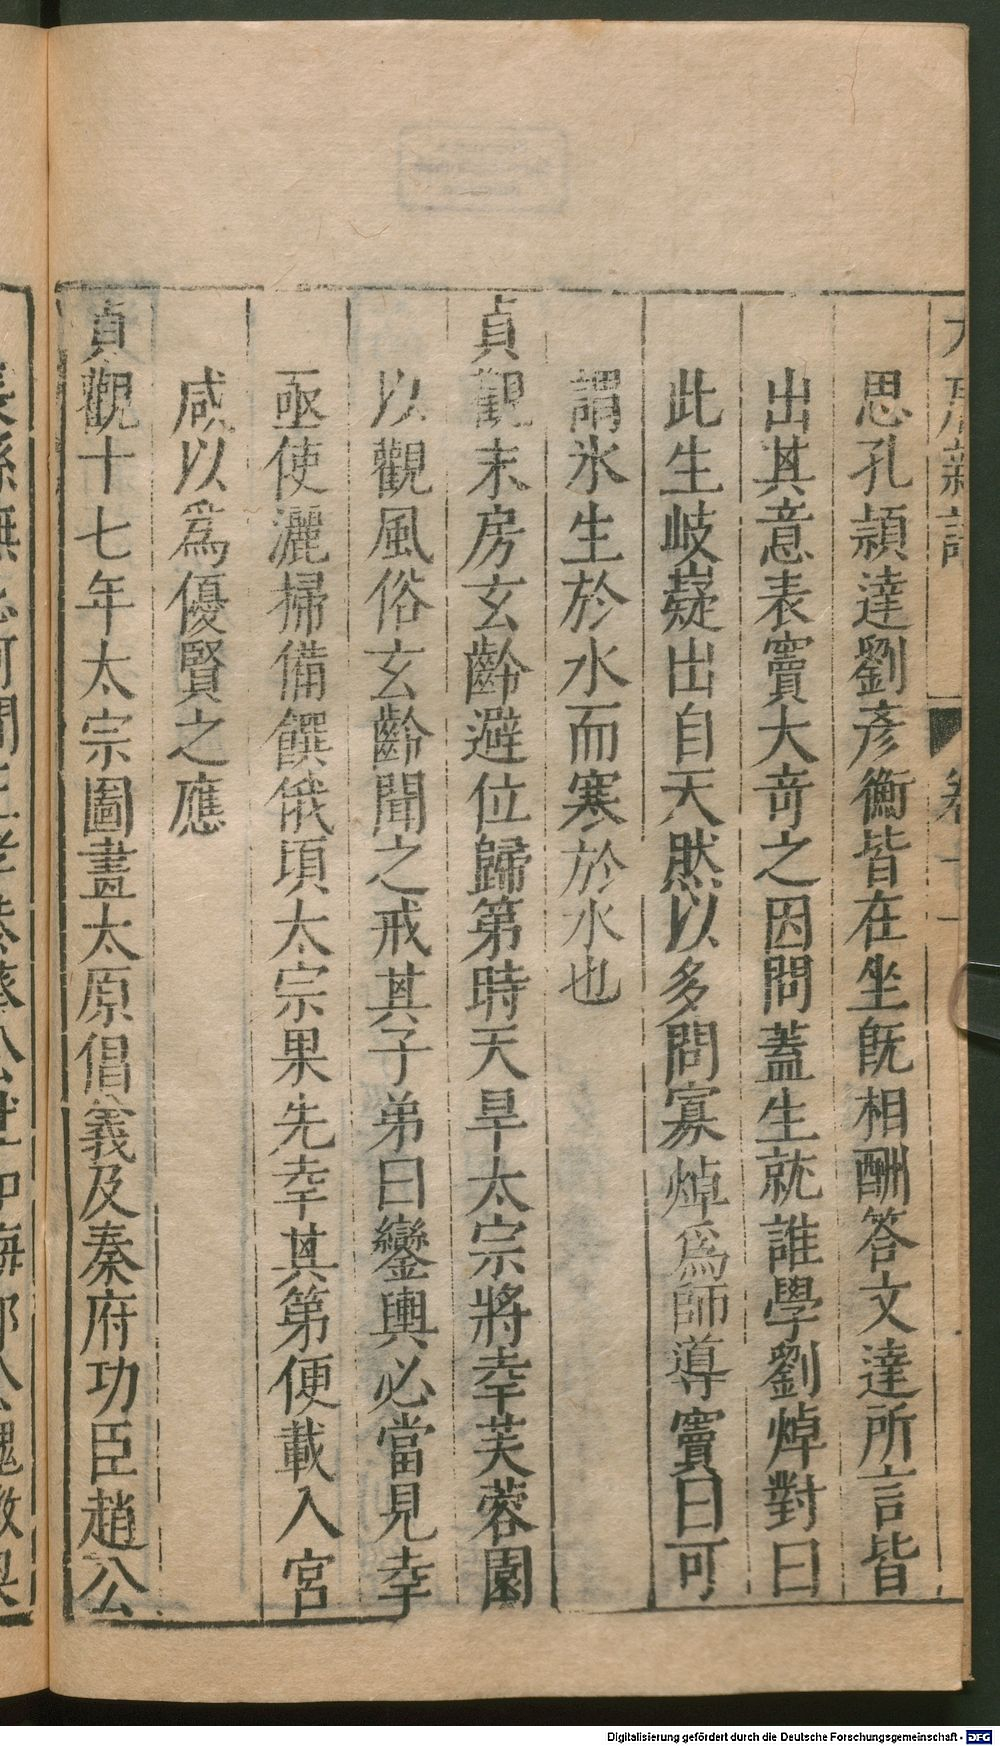 大唐新語 卷十一
思孔頴達劉彥衡皆在坐旣相酬答文達所言皆
出其意表竇大奇之因問蓋生就誰學劉焯對曰
此生岐嶷出自天然以多問寡焯爲師導竇曰可
謂氷生於水而寒於水也
貞觀末房玄齡避位歸第時天旱太宗將幸芙蓉園
以觀風俗玄齡聞之戒其子弟曰鑾輿必當見幸
亟使灑掃備饌俄頃太宗果先幸其第便載入宮
咸以爲優賢之應
貞觀十七年太宗圖畫太原倡義及秦府功臣趙公
Digitalisierung gefördert durch die Deutsche Forschungsgemeinschaft - DFG